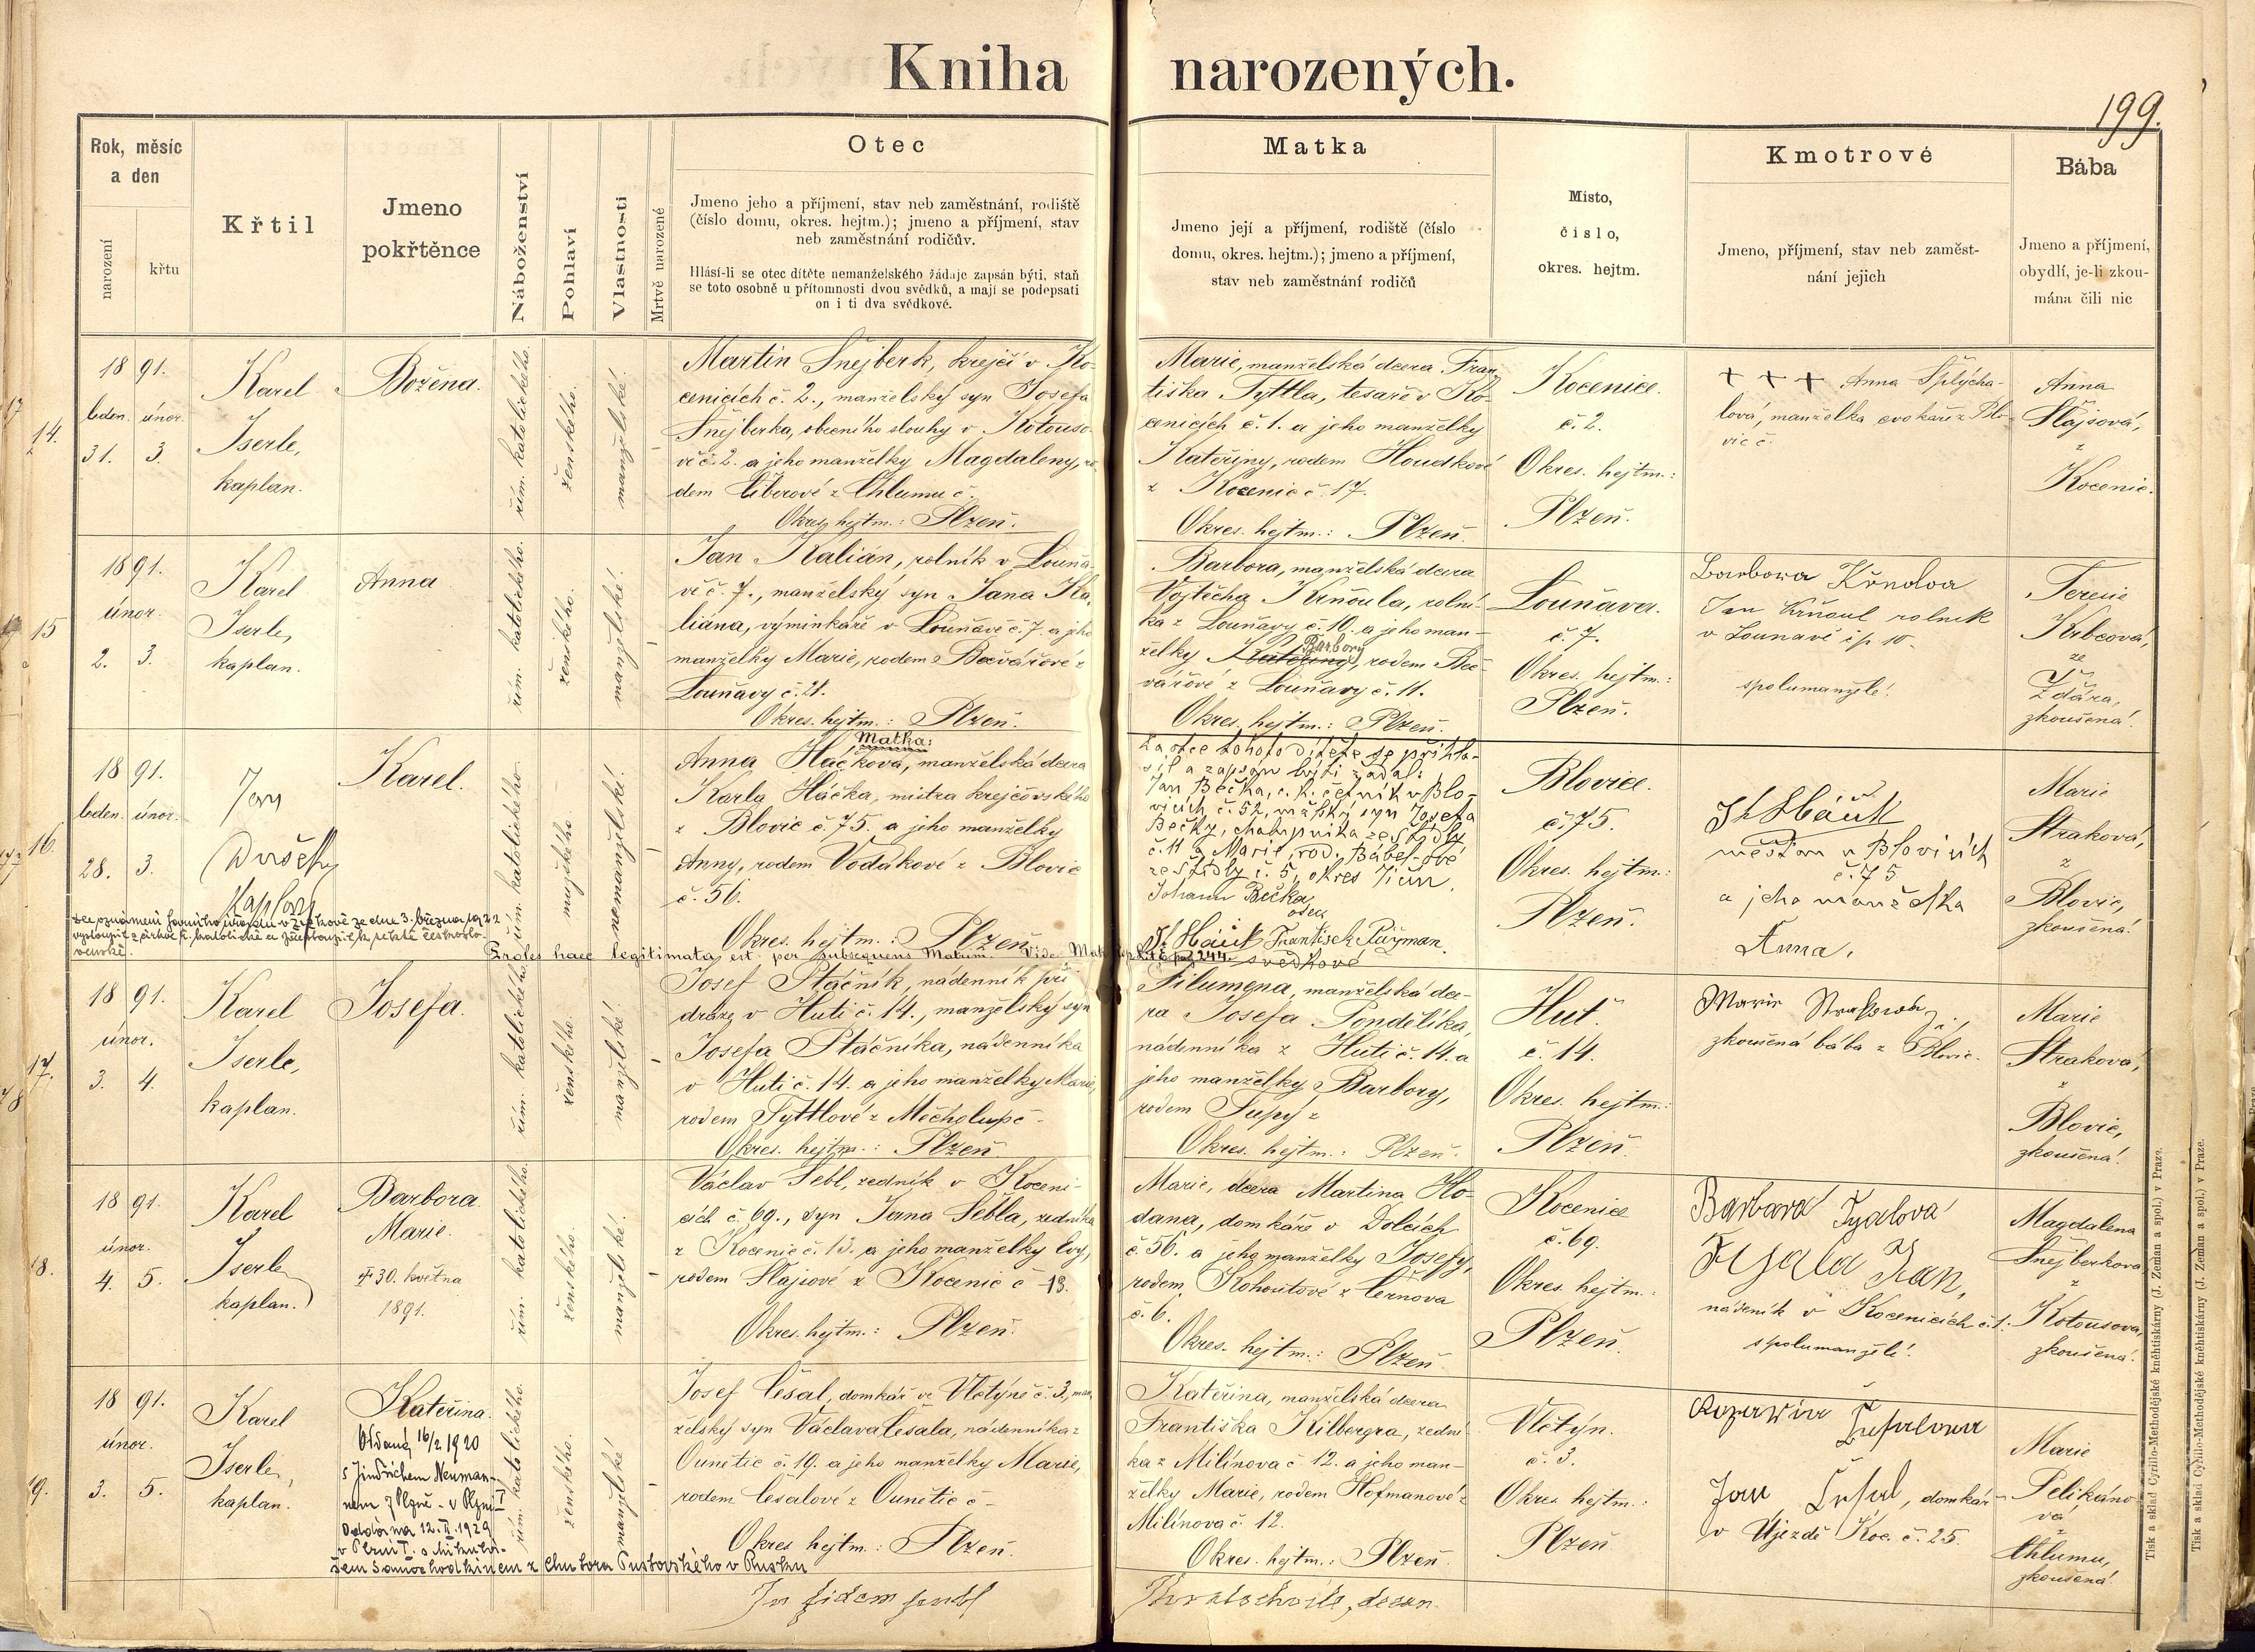 Kniha narozených.
199.
Rok, měsíc
a den
narození
křtu
Křtil
Jmeno
pokřtěnce
Náboženství
Pohlaví
Vlastnosti
Mrtvě narozené
Otec
Jmeno jeho a příjmení, stav neb zaměstnání, rodiště
(číslo domu, okres. hejtm.); jmeno a příjmení, stav
neb zaměstnání rodičův.
Hlásí-li se otec dítěte nemanželského žádaje zapsán býti, staň
se toto osobně u přítomnosti dvou svědků, a mají se podepsati
on i ti dva svědkové.
Matka
Jmeno její a příjmení, rodiště (číslo
domu, okres. hejtm.); jmeno a příjmení,
stav neb zaměstnání rodičů
Místo,
číslo,
okres. hejtm.
Kmotrové
Jmeno, příjmení, stav neb zaměst-
nání jejich
Bába
Jmeno a příjmení,
obydlí, je-li zkou-
mána čili nic
14.
1891.
leden. únor.
31. 3.
Karel
Iserle,
kaplan.
Božena.
řím. katolického.
ženského.
manželské.
Martin Šnejberk, krejčí v Ko-
cenicích č. 2., manželský syn Josefa
Šnejberka, obecního slouhy v Kotouso-
vě č. 2. a jeho manželky Magdaleny, ro-
dem Ciberové z Chlumu č.
Okres. hejtm.: Plzeň.
Marie, manželská dcera Fran-
tiška Tyttla, tesaře v Ko-
cenicích č. 1. a jeho manželky
Kateřiny, rodem Houdkové
z Kocenic č. 17.
Okres. hejtm.: Plzeň.
Kocenice.
č. 2.
Okres. hejtm.:
Plzeň.
+ + + Anna Šplýcha-
lová, manželka cvokaře z Blo-
vic č.
Anna
Šlajsová,
z
Kocenic.
15
1891.
únor.
2. 3.
Karel
Iserle,
kaplan.
Anna
řím. katolického.
ženského.
manželské.
Jan Kalián, rolník v Louňa-
vě č. 7., manželský syn Jana Ka-
liána, výminkáře v Louňavě č. 7. a jeho
manželky Marie, rodem Bočvářové z
Louňavy č. 21.
Okres. hejtm.: Plzeň.
Barbora, manželská dcera
Vojtěcha Krňoula, rolní-
ka z Louňavy č. 10. a jeho man-
Barbory
želky Kateřiny, rodem Boč-
vářové z Louňavy č. 11.
Okres. hejtm.: Plzeň.
Louňava.
č. 7.
Okres. hejtm.:
Plzeň.
Barbora
Jan Krňoul rolník
v Lounavě čp 10.
spolumanželé.
Terezie
Krbcová,
ze
Ždára,
zkoušená.
16.
1891.
leden. únor.
28. 3.
Jan
Kaplan
Karel.
řím. katolického.
mužského.
nemanželské.
Matka:
Anna Háčková, manželská dcera
Karla Háčka, mistra krejčovského
z Blovic č. 75. a jeho manželky
Anny, rodem Vodákové z Blovic
č. 56.
Okres. hejtm.: Plzeň.
Za otce tohoto dítěte se přihlá-
sil a zapsán býti žádal:
Jan Bečka, c. k. četník v Blo-
vicích č. 52, mažský syn Josefa
Bečky, chalupníka ze Střídby
č. 11 a Marie, rod. Bábel- obé
ze Střídby č. 5, okres Jičín.
Johann Bečka
otec
František
svědkové
Blovice.
č. 75.
Okres. hejtm.:
Plzeň.
měšťan v Blovicích
č. 75
a jeho manželka
Anna.
Marie
Straková,
z
Blovic,
zkoušená.
Dle oznámení farního úřadu v Žižkově ze dne 3. března 1922
vystoupil z církve ř. katolické a přistoupil k sektě českoslo-
venské.
Proles haec legitimata est per subsequens Matrim. Vide Matr. 244.
17.
1891.
únor.
3. 4.
Karel
Iserle,
kaplan.
Josefa.
řím. katolického.
ženského.
manželské.
Josef Ptáčník, nádenník při
dráze v Huti č. 14., manželský syn
Josefa Ptáčníka, nádenníka
v Huti č. 14. a jeho manželky Marie,
rodem Tyttlové z Měcholup č. -
Okres. hejtm.: Plzeň.
Filumena, manželská dce-
ra Josefa Pondělíka,
nádenníka z Huti č. 14. a
jeho manželky Barbory,
rodem Tupý z
Okres. hejtm.: Plzeň.
Huť.
č. 14.
Okres. hejtm.:
Plzeň.
Marie Straková,
zkoušená bába z Blovic.
Marie
Straková,
z
Blovic,
zkoušená.
18.
1891.
únor.
4. 5.
Karel
Iserle
kaplan.
Barbora
Marie.
† 30. května
1891.
řím. katolického.
ženského.
manželské.
Václav Šebl, zedník v Koceni-
cích č. 69., syn Jana Šebla, zedníka
z Kocenic č. 13. a jeho manželky Evy,
rodem Šlajsové z Kocenic č. 13.
Okres. hejtm.: Plzeň.
Marie, dcera Martina Ho-
dana, domkáře v Dolcích
č. 56. a jeho manželky Josefy,
rodem Kohoutové z Černova
č. 6.
Okres. hejtm.: Plzeň
Kocenice
č. 69.
Okres. hejtm.:
Plzeň.
Barbara Fyalová
Fyala Jan,
nádeník v Kocenicích č. 1.
spolumanželé.
Magdalena
Šnejberková
z
Kotousova,
zkoušená.
19.
1891.
únor.
3. 5.
Karel
Iserle,
kaplan.
Kateřina.
Oddaná 16/2 1920
s Jindřichem Neuman-
nem z Plzně - v Plzni I
Oddána 12. II. 1929
v Plzni I.
z Chutora Pustovského v Rusku
řím. katolického.
ženského.
manželské.
Josef Česal, domkář ve Vlčtýně č. 3, man-
želský syn Václava Česala, nádenníka z
Ounětic č. 19. a jeho manželky Marie,
rodem Česalové z Ounětic č. -
Okres hejtm.: Plzeň.
Kateřina, manželská dcera
Františka Kilbergra, zední-
ka z Milínova č. 12. a jeho man-
želky Marie, rodem Hofmanové z
Milínova č. 12.
Okres. hejtm.: Plzeň.
Vlčtýn.
č. 3.
Okres hejtm.:
Plzeň.
Jan Česal, domkář
v Újezdě Koc. č. 25.
Marie
Pelikáno-
vá
z
Chlumu,
zkoušená.
In fidem
decan.
Tisk a sklad Cyrillo-Methodějské kněhtiskárny (J. Zeman a spol.) v Praze.
Tisk a sklad Cyrillo-Methodějské kněhtiskárny (J. Zeman a spol.) v Praze.